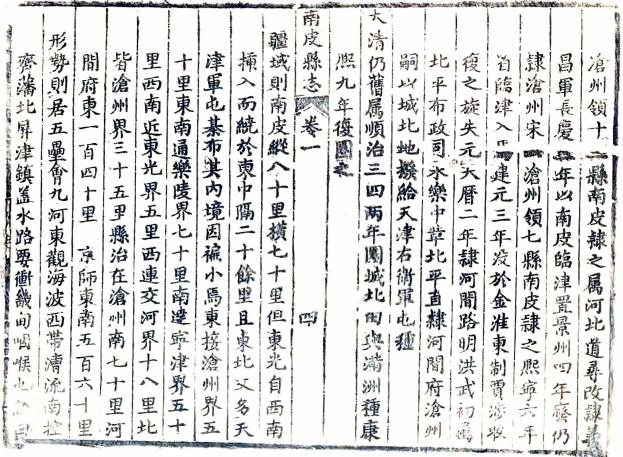 滄州領十二縣南皮隸之屬河北道尋改隸義
昌軍長慶二年以南皮臨津置景州四年廢仍
隸滄州宋滄州領七縣南皮隸之熙寧六年
省臨津入建元三年沒於金淮東制賈涉收
復之旋失元天曆二年隸河間路明洪武初屬
北平布政司永樂中革北平直隸河間府滄州
嗣以城北地撥給天津右衛軍屯種
大清仍舊屬順治三四兩年圈城北田與滿洲種康
熙九年復圈之
南皮縣志 卷一 四
疆域則南皮縱八十里橫七十里但東光自西南
插入而繞於東中隔二十餘里且東北又多天
津軍屯棊布其內境因褊小焉東接滄州界五
十里東南通樂陵界七十里南達寧津界五十
里西南近東光界五里西連交河界十八里北
皆滄州界三十五里縣治在滄州南七十里河
間府東一百四十里 京師東南五百六十里
形勢則居五壘會九河東觀海波西帶漕流南控
齊藩北屏津鎮蓋水路要衝畿甸咽喉也